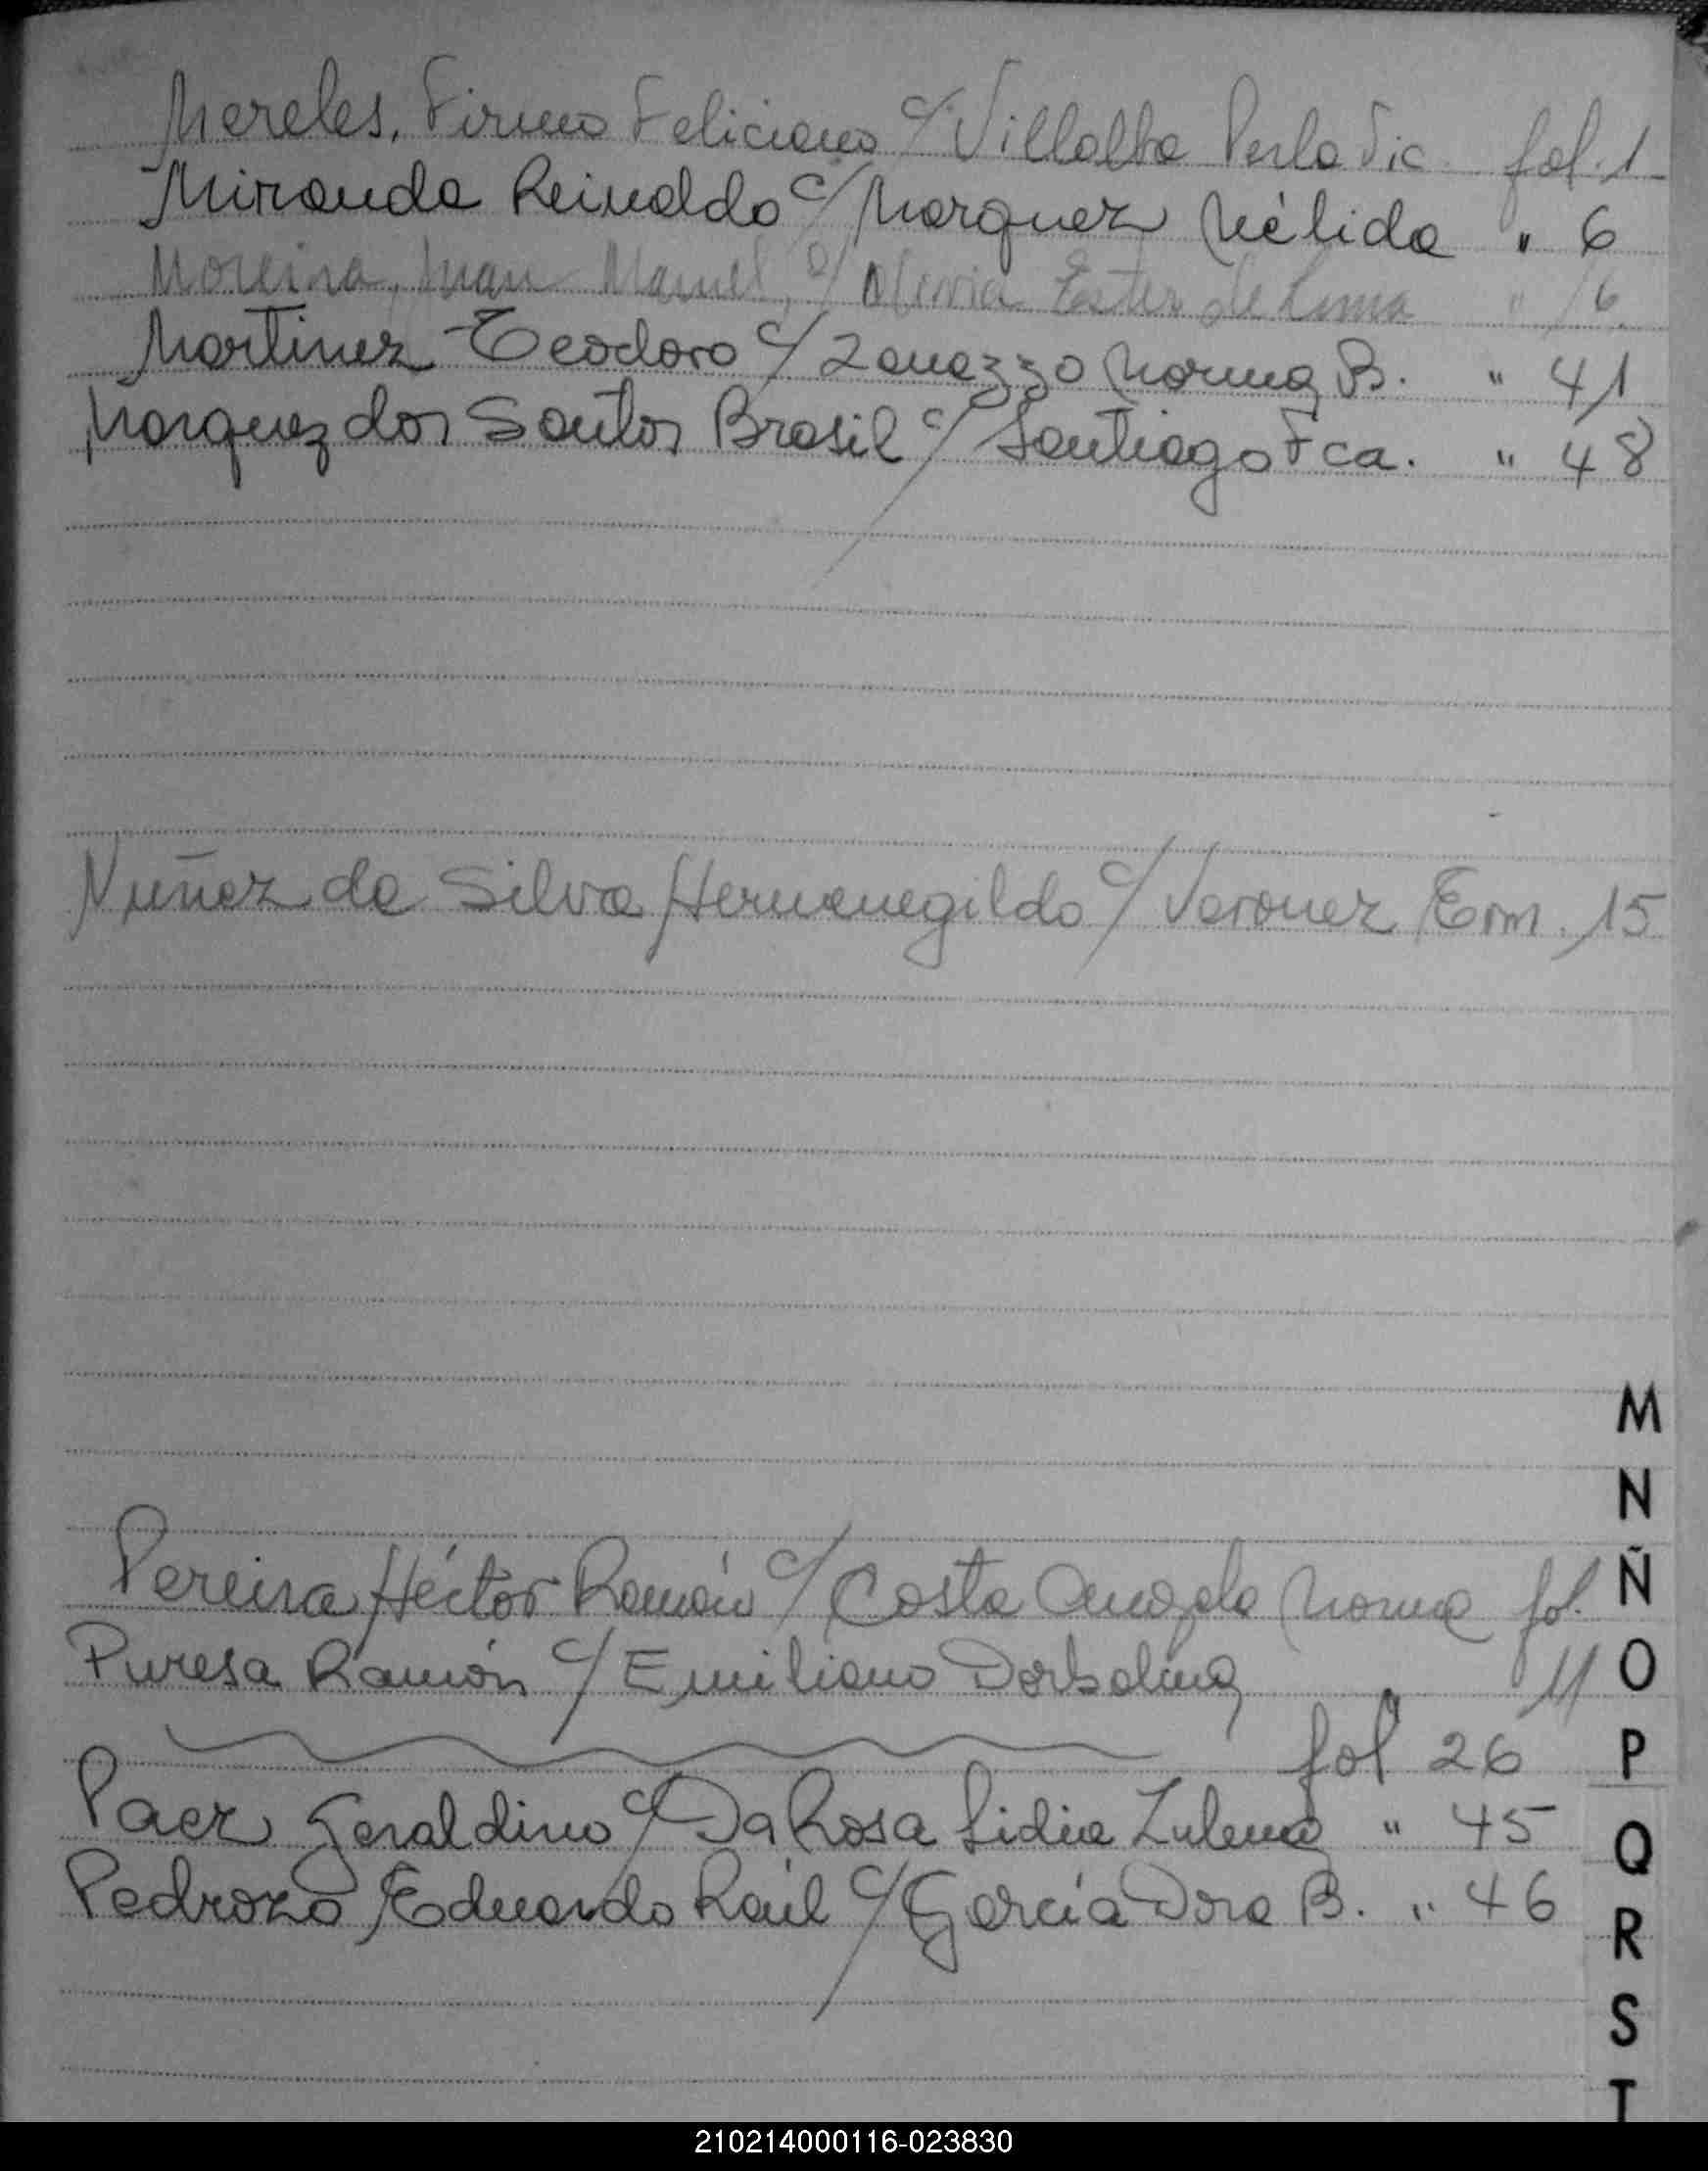 Mereles, Firmo Feliciano c/ Villalba Perla Vic. fol. 1
Miranda Reinaldo c/ Marquez Nélida " 6
Moreira, Juan Manuel, c/ Olivia Ester de Lima " 16
Martinez Teodoro c/ Zanazzo Norma B. " 41
Marquez dos Santos Brasil c/ Santiago Fca. " 48
Nuñez da Silva Hermenegildo c/ Veronez Erm. 15
Pereira Héctor Ramón c/ Costa Angela Norma fol.
Puresa Ramón c/ Emiliano Dorbalina 11
fol 26
Paez Geraldino c/ Da Rosa Lidia Zulema " 45
Pedrozo Eduardo Raúl c/ García Dora B. " 46
M
N
Ñ
O
P
Q
R
S
T
210214000116-023830